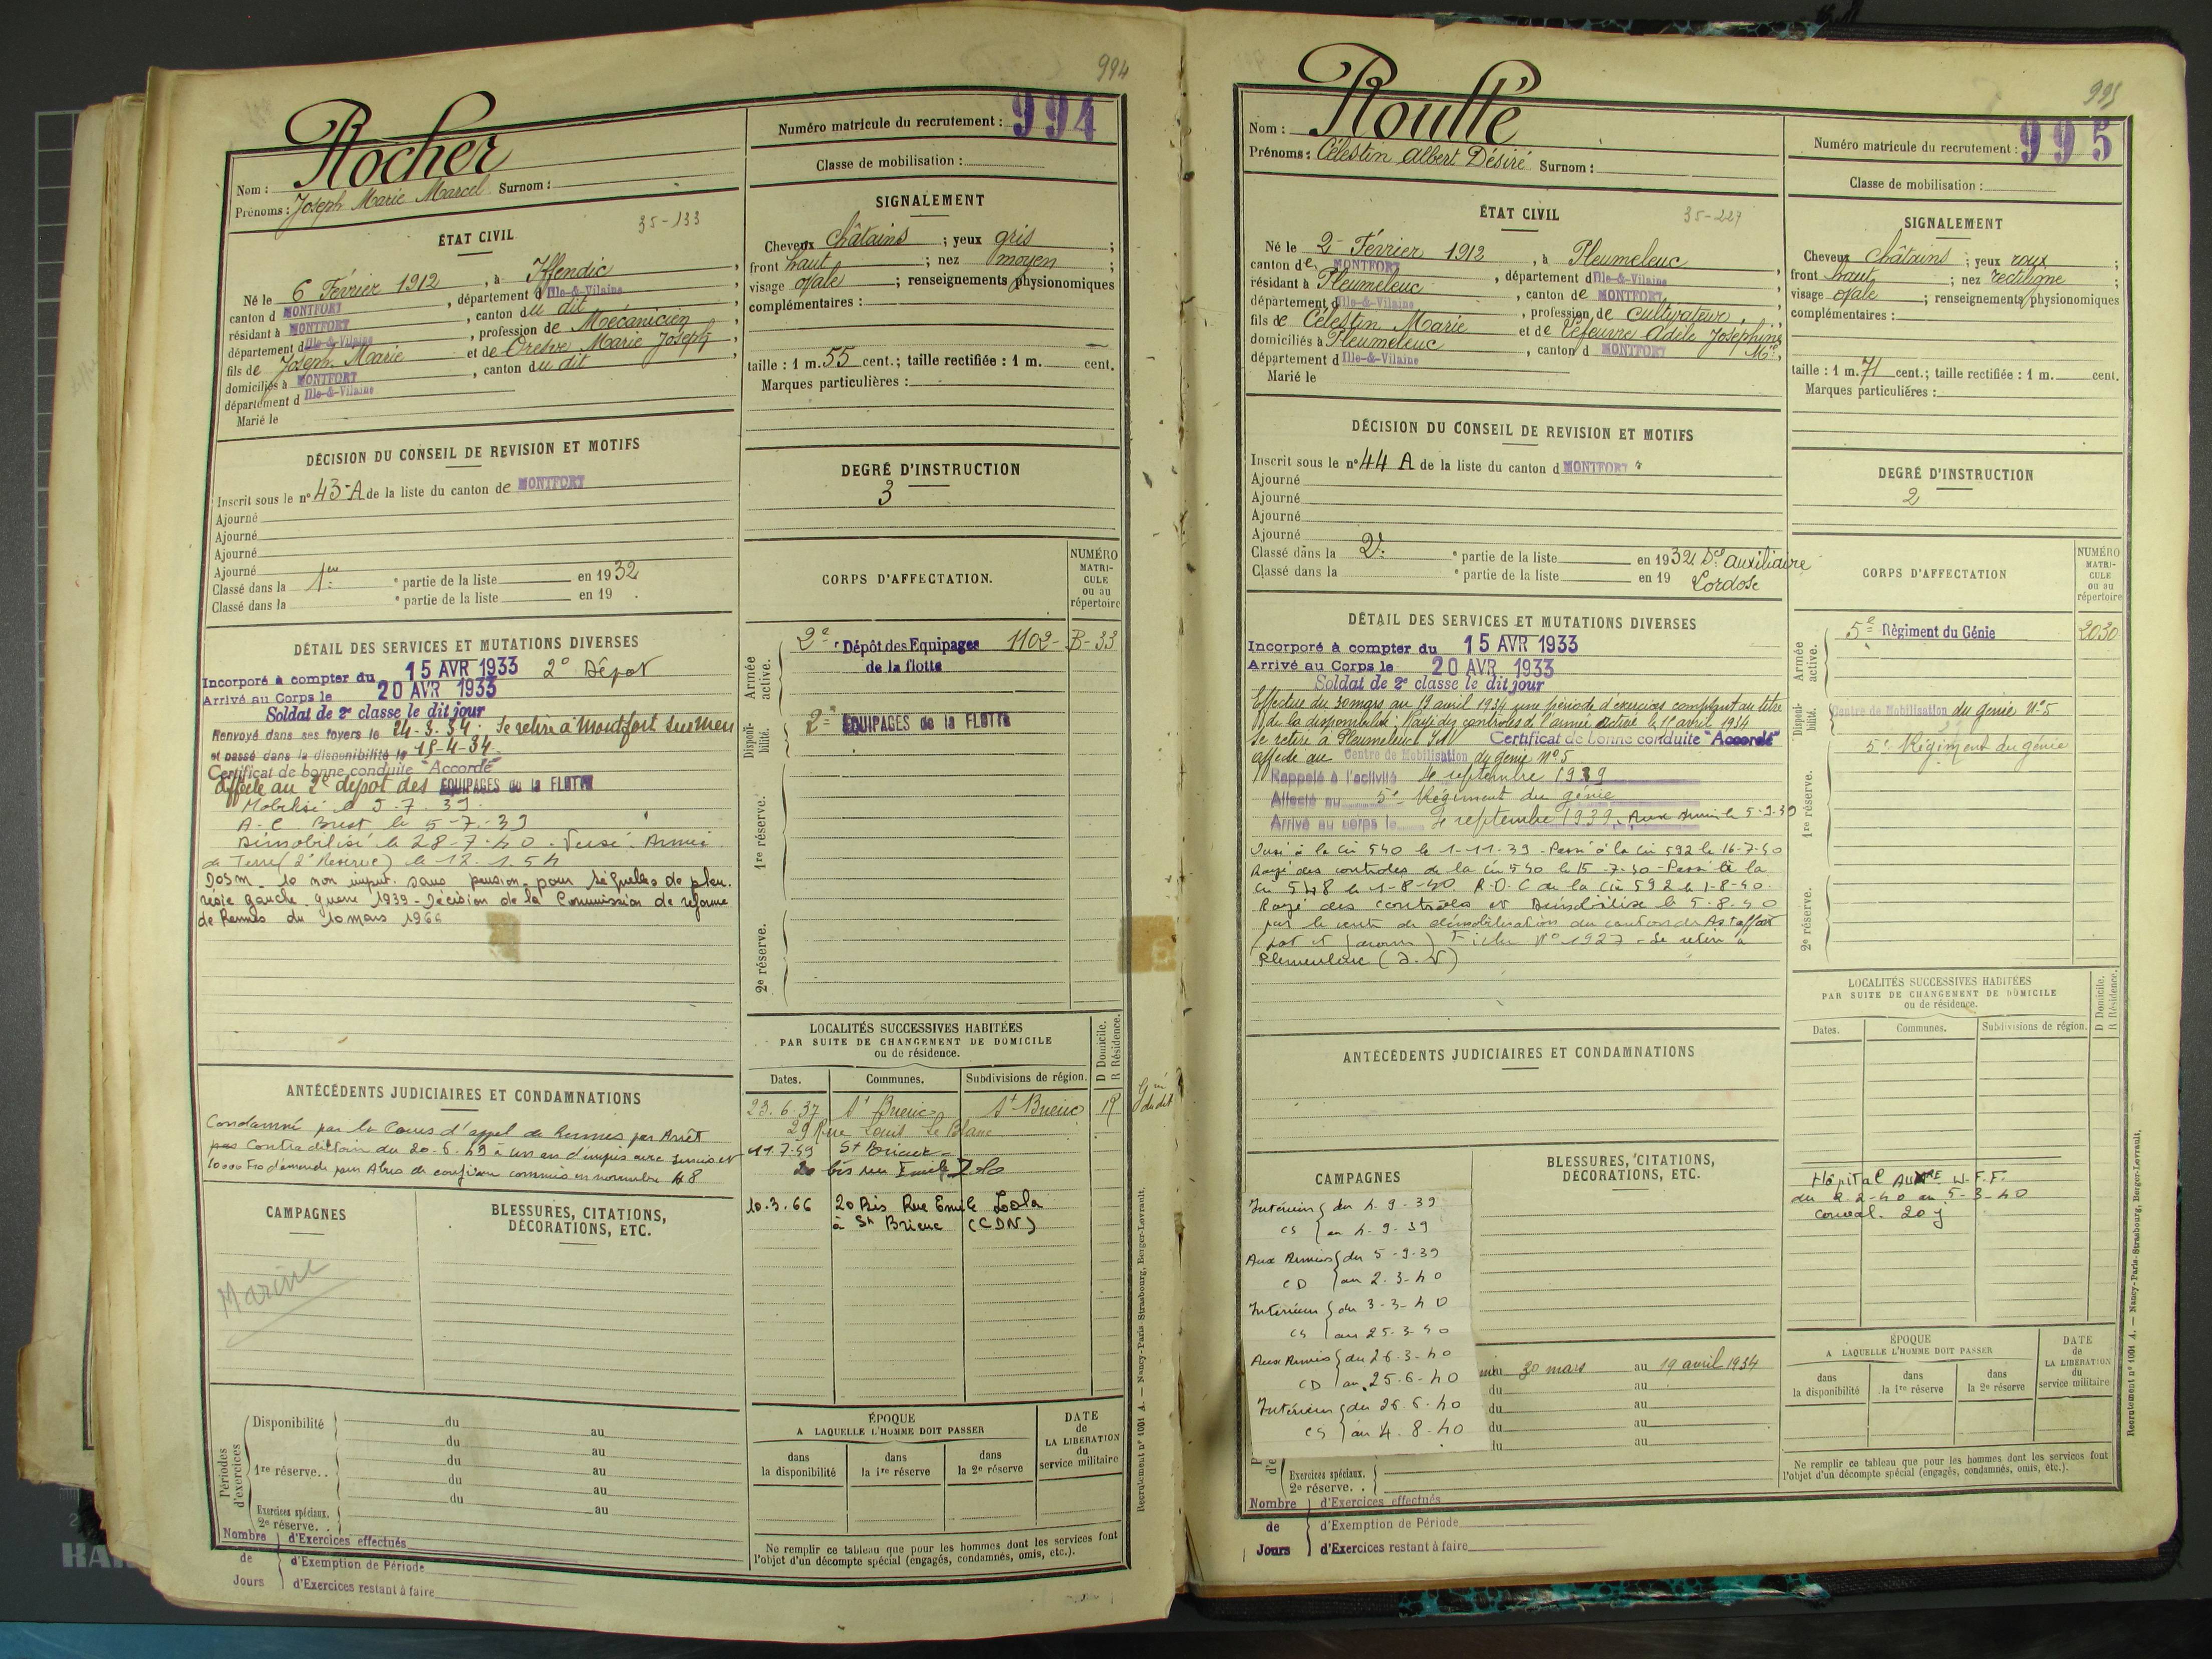 994
Nom : Rocher
Prénoms : Joseph Marie Marcel Surnom :
Numéro matricule du recrutement : 994
Classe de mobilisation :
35-133
ÉTAT CIVIL
Né le 6 Février 1912, à Iffendic,
canton d MONTFORT, département d Ille-&-Vilaine
résidant à MONTFORT, canton du dit
département d Ille-&-Vilaine, profession de Mécanicien,
fils de Joseph Marie et de Oresve Marie Joseph,
domiciliés à MONTFORT, canton du dit
département d Ille-&-Vilaine
Marié le
SIGNALEMENT
Cheveux châtains ; yeux gris ;
front haut ; nez moyen ;
visage ovale ; renseignements physionomiques
complémentaires :
taille : 1 m. 55 cent.; taille rectifiée : 1 m. cent.
Marques particulières :
DÉCISION DU CONSEIL DE REVISION ET MOTIFS
Inscrit sous le n° 43-A de la liste du canton de MONTFORT
Ajourné
Ajourné
Ajourné
Ajourné
Classé dans la 1re e partie de la liste en 1932
Classé dans la e partie de la liste en 19 .
DEGRÉ D'INSTRUCTION
3
DÉTAIL DES SERVICES ET MUTATIONS DIVERSES
Incorporé à compter du 15 AVR 1933 2e Dépot
Arrivé au Corps le 20 AVR 1933
Soldat de 2e classe le dit jour
Renvoyé dans ses foyers le 24-3.34. Se retire à Montfort sur Meu
et passé dans la disponibilité le 15-4-34.
Certificat de bonne conduite "Accordé"
Affecté au 2e dépot des EQUIPAGES de la FLOTTE
Mobilisé le 5.7.39.
A-C Brest le 5-7-39
Démobilisé le 28-7-40. Versé Armée
de Terre (2e Réserve) le 12.1.54
DOSM. 10 non imput. sans pension pour séquelles de pleu.
résie gauche. guerre 1939 - Décision de la Commission de réforme
de Rennes du 10 mars 1966
CORPS D'AFFECTATION.
NUMÉRO MATRI-CULE ou au répertoire
Armée active.
2e Dépôt des Equipages 1102- B-33
de la flotte
Disponi-bilité.
2e EQUIPAGES de la FLOTTE
1re réserve.
2e réserve.
ANTÉCÉDENTS JUDICIAIRES ET CONDAMNATIONS
Condamné par la Cour d'appel de Rennes par Arrêt
Contradictoire du 20.6.49 à un an d'empris avec sursis et
10000 Frs d'amende pour Abus de confiance commis en novembre 48
LOCALITÉS SUCCESSIVES HABITÉES
PAR SUITE DE CHANGEMENT DE DOMICILE
ou de résidence.
D Domicile.
R Résidence.
Dates. Communes. Subdivisions de région.
23.6.37 St Brieuc St Brieuc R
29 Rue Louis Le Blanc
11.7.49 St Brieuc
20 bis rue Emile Zola
10.3.66 20 Bis Rue Emile Zola
à St Brieuc (CDN)
CAMPAGNES
Marine
BLESSURES, CITATIONS,
DÉCORATIONS, ETC.
Périodes d'exercices
Disponibilité du au
du au
1re réserve.. du au
du au
du au
Exercices spéciaux.
2e réserve. .
Nombre de Jours
d'Exercices effectués
d'Exemption de Période
d'Exercices restant à faire
ÉPOQUE
A LAQUELLE L'HOMME DOIT PASSER
dans la disponibilité
dans la 1re réserve
dans la 2e réserve
DATE de LA LIBÉRATION du service militaire
Ne remplir ce tableau que pour les hommes dont les services font
l'objet d'un décompte spécial (engagés, condamnés, omis, etc.).
Recrutement n° 1001 A. — Nancy-Paris-Strasbourg, Berger-Levrault.
995
Nom : Roullé
Prénoms : Célestin Albert Désiré Surnom :
Numéro matricule du recrutement : 995
Classe de mobilisation :
35-227
ÉTAT CIVIL
Né le 2 Février 1912, à Pleumeleuc
canton de MONTFORT, département d Ille-&-Vilaine,
résidant à Pleumeleuc, canton de MONTFORT,
département d Ille-&-Vilaine, profession de cultivateur,
fils de Célestin Marie et de Lefeuvre Adèle Joséphine Mie,
domiciliés à Pleumeleuc, canton d MONTFORT
département d Ille-&-Vilaine
Marié le
SIGNALEMENT
Cheveux châtains ; yeux roux ;
front haut ; nez rectiligne ;
visage ovale ; renseignements physionomiques
complémentaires :
taille : 1 m. 71 cent.; taille rectifiée : 1 m. cent.
Marques particulières :
DÉCISION DU CONSEIL DE REVISION ET MOTIFS
Inscrit sous le n° 44 A de la liste du canton d MONTFORT
Ajourné
Ajourné
Ajourné
Ajourné
Classé dans la 2e e partie de la liste en 1932 Sce auxiliaire
Classé dans la e partie de la liste en 19 Lordose
DEGRÉ D'INSTRUCTION
2
DÉTAIL DES SERVICES ET MUTATIONS DIVERSES
Incorporé à compter du 15 AVR 1933
Arrivé au Corps le 20 AVR 1933
Soldat de 2e classe le dit jour
Effectue du 30 mars au 19 avril 1934 une période d'exercices comptant au titre
de la disponibilité. Rayé des contrôles de l'armée active le 15 avril 1934
Se retire à Pleumeleuc I&V Certificat de bonne conduite "Accordé"
affecté au Centre de Mobilisation du génie N°5
Rappelé à l'activité le 4 septembre 1939
Affecté au 5e Régiment du génie
Arrivé au corps le 4 septembre 1939. Aux Armées le 5-9-39
Passé à la Cie 540 le 1-11-39 - Passé à la Cie 592 le 16-7-40
Rayé des contrôles de la Cie 540 le 15-7-40 - Passé à la
Cie 548 le 1-8-40 R.D.C de la Cie 592 le 1-8-40.
Rayé des contrôles et Démobilisé le 5-8-40
par le centre de démobilisation du canton de Astaffort
(Lot et Garonne) Fiche N° 1927 - Se retire à
Pleumeleuc (I.V)
CORPS D'AFFECTATION
NUMÉRO MATRI-CULE ou au répertoire
Armée active.
5e Régiment du Génie 2030
Disponi-bilité.
Centre de Mobilisation du génie N°5
1re réserve.
5e Régiment du génie
2e réserve.
ANTÉCÉDENTS JUDICIAIRES ET CONDAMNATIONS
LOCALITÉS SUCCESSIVES HABITÉES
PAR SUITE DE CHANGEMENT DE DOMICILE
ou de résidence.
D Domicile.
R Résidence.
Dates. Communes. Subdivisions de région.
Hôpital Aux.re W.F.F.
du 2-40 au 5-3-40
conval. 20 j
CAMPAGNES
Intérieur du 4-9-39
CS au 4-9-39
Aux Armées du 5-9-39
CD au 2-3-40
Intérieur du 3-3-40
CS au 25-3-40
Aux Armées du 26-3-40
CD au 25-6-40
Intérieur du 26-6-40
CS au 4-8-40
BLESSURES, CITATIONS,
DÉCORATIONS, ETC.
30 mars au 19 avril 1934
du au
du au
du au
du au
Exercices spéciaux.
2e réserve. .
Nombre de Jours
d'Exercices effectués
d'Exemption de Période
d'Exercices restant à faire
ÉPOQUE
A LAQUELLE L'HOMME DOIT PASSER
dans la disponibilité
dans la 1re réserve
dans la 2e réserve
DATE de LA LIBÉRATION du service militaire
Ne remplir ce tableau que pour les hommes dont les services font
l'objet d'un décompte spécial (engagés, condamnés, omis, etc.).
Recrutement n° 1001 A. — Nancy-Paris-Strasbourg, Berger-Levrault.